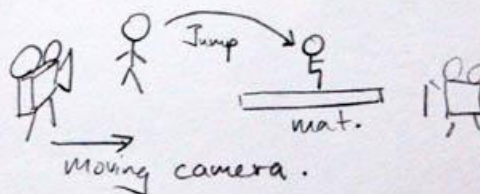 Jump
mat.
moving camera.